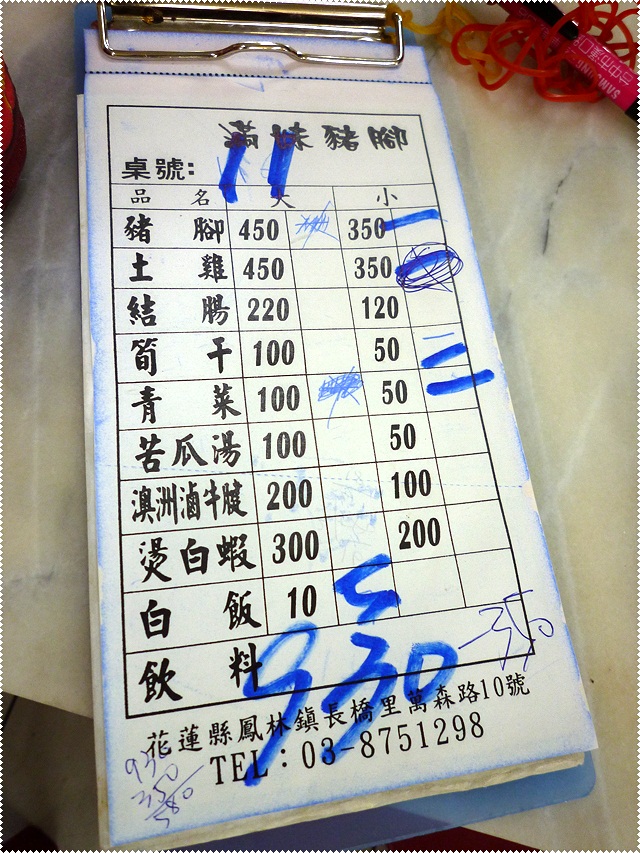 SAMSUNG
滿妹豬腳
桌號: 11
品名 大 小
豬腳 450 350 一
土雞 450 350
結腸 220 120
筍干 100 50 一
青菜 100 50 一
苦瓜湯 100 50
澳洲滷牛腱 200 100
燙白蝦 300 200
白飯 10
飲料
930
-350
花蓮縣鳳林鎮長橋里萬森路10號
TEL:03-8751298
930
350
580